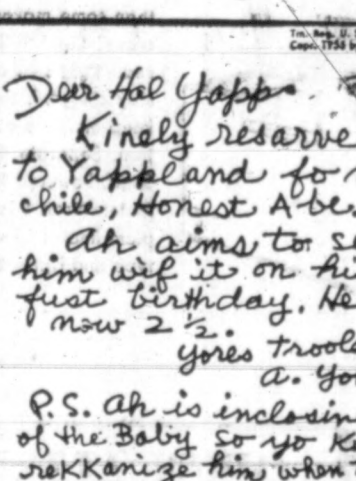 Tm. Reg. U. S.
Copr. 1955 b
Dear Hal Yapp
Kinely resarve
to Yappland fo
chile, Honest Abe.
Ah aims to
him wif it on hi
fust birthday. He
now 2 ½.
yores trools
a. Yo
P.S. Ah is inclosin
of the Baby so yo
reKKanize him when